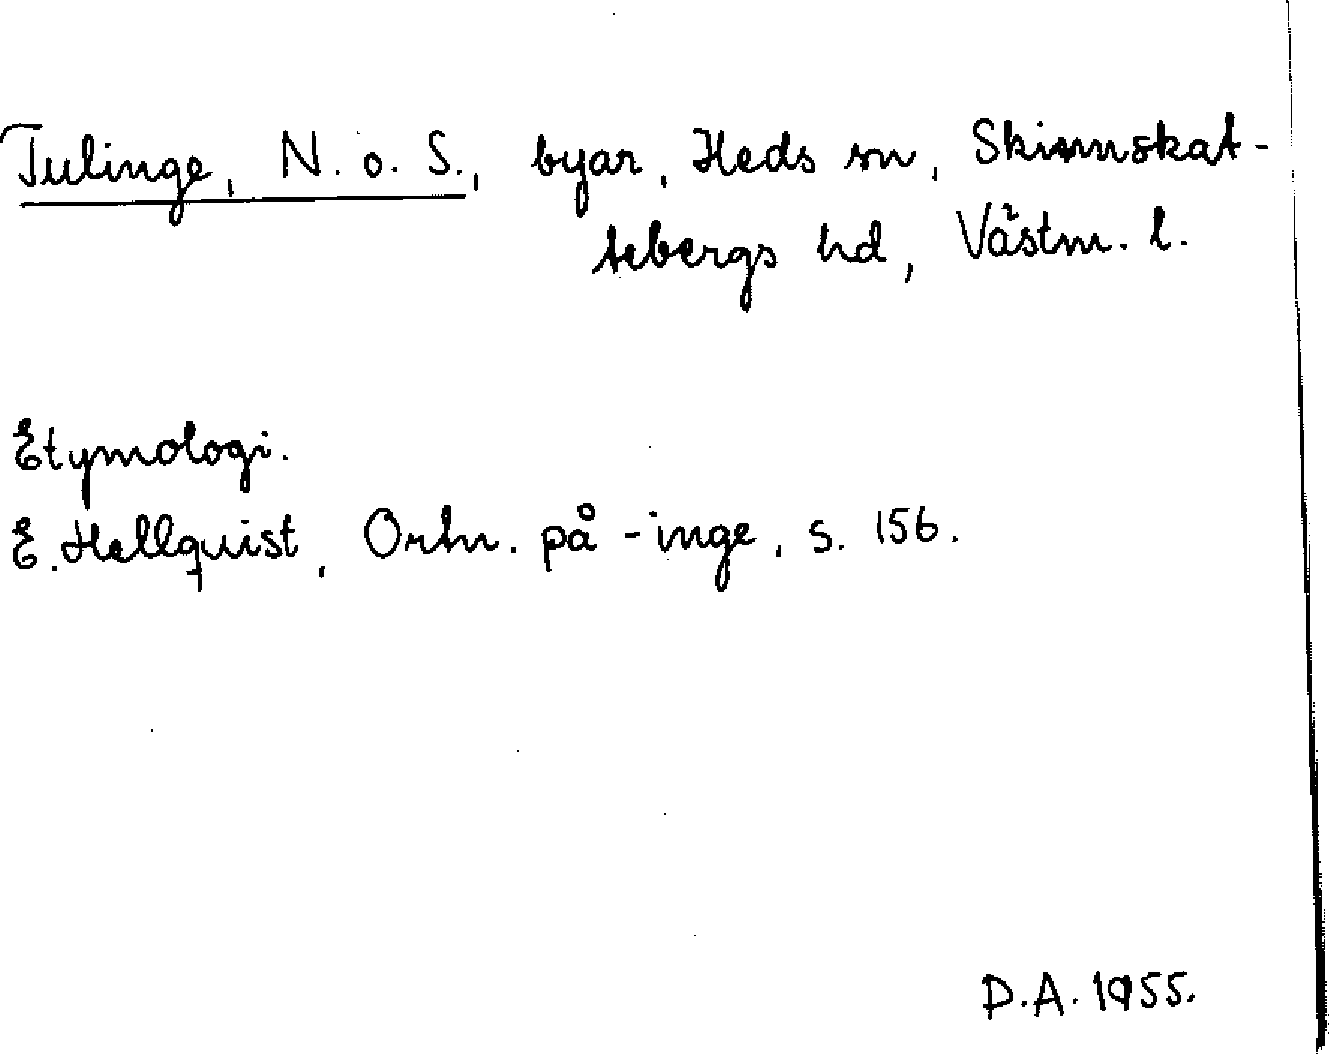 Tulinge, N. o. S., byar, Heds sn, Skinnskat-
tebergs hd, Västm. l.
Etymologi.
E. Hellquist, Ortn. på -inge, s. 156.
D.A. 1955.